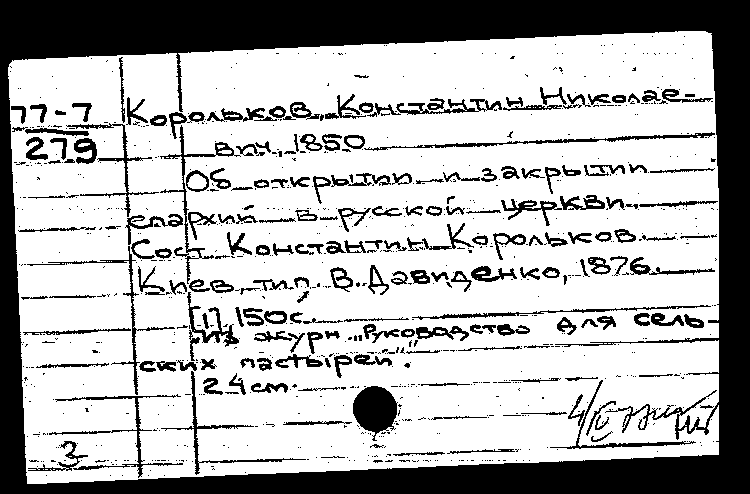 77-7
279
Корольков, Константин Николае-
вич, 1850
Об открытии и закрытии
епархий в русской церкви.
Сост. Константин Корольков.
Киев, тип. В. Давиденко, 1876.
[1], 150 с.
"Из журн. "Руководство для сель-
ских пастырей".
24 cm.
3